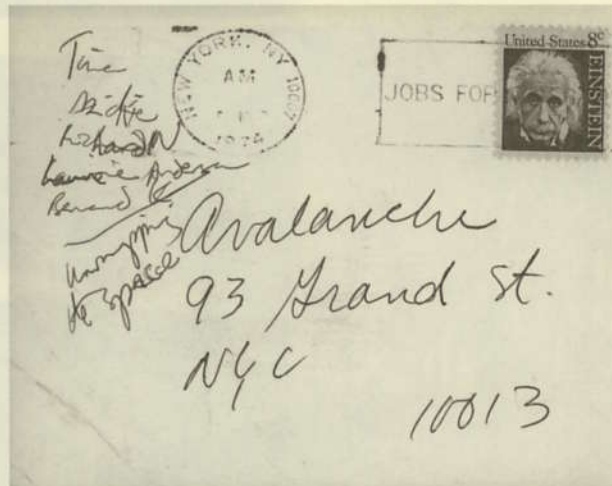 Tina
Dickie
Richard N
Laurie Anderson
the space
NEW YORK, NY
AM
1974
JOBS FOR
United States 8c
EINSTEIN
Avalanche
93 Grand St.
NYC
10013